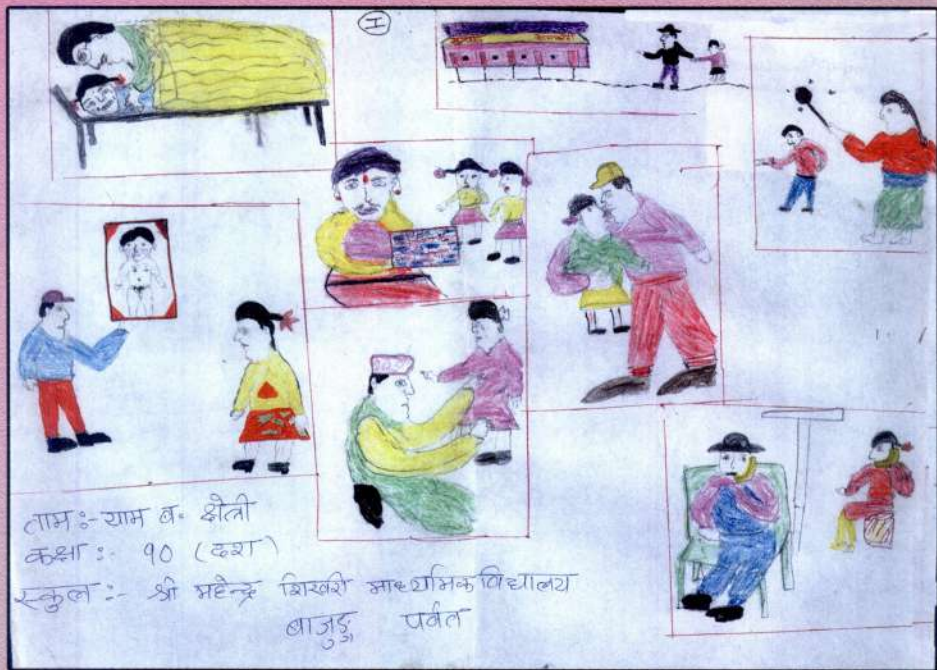 I
नाम :- याम ब. क्षेत्री
कक्षा :- १० (दश)
स्कुल :- श्री महेन्द्र शिखरी माध्यमिक विद्यालय
बाजुङ्ग पर्वत